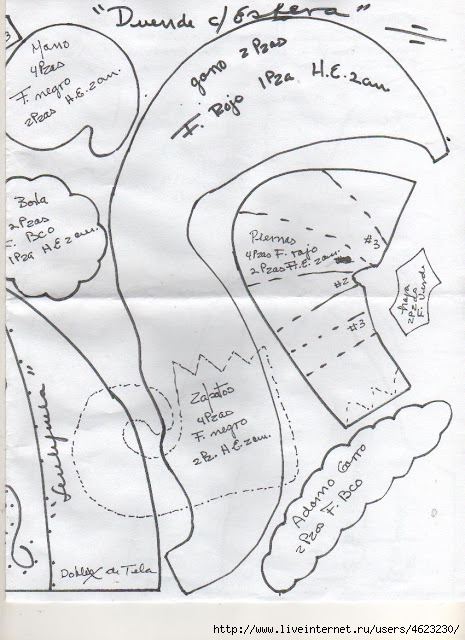 "Duende c/ Esfera"
Mano
4 Pzas
F. negro
2 Pzas H.E. 2 cm.
gorro 2 Pzas
F. Rojo 1 Pza H.E. 2 cm
Bota
2 Pzas
F. Bco
1 Pza H.E. 2 cm.
Piernas
4 Pzas F. rojo
2 Pzas H.E. 2 cm.
#3
#2
#3
2 Pz de
F. Verde
Zapatos
4 Pzas
F. negro
2 Pz. H.E. 2 cm.
Adorno Gorro
2 Pzas F. Bco
Doblez de Tela
http://www.liveinternet.ru/users/4623230/